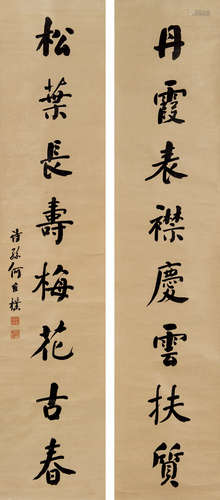 丹霞表襟慶雲扶質
松葉長壽梅花古春
詩孫何維樸